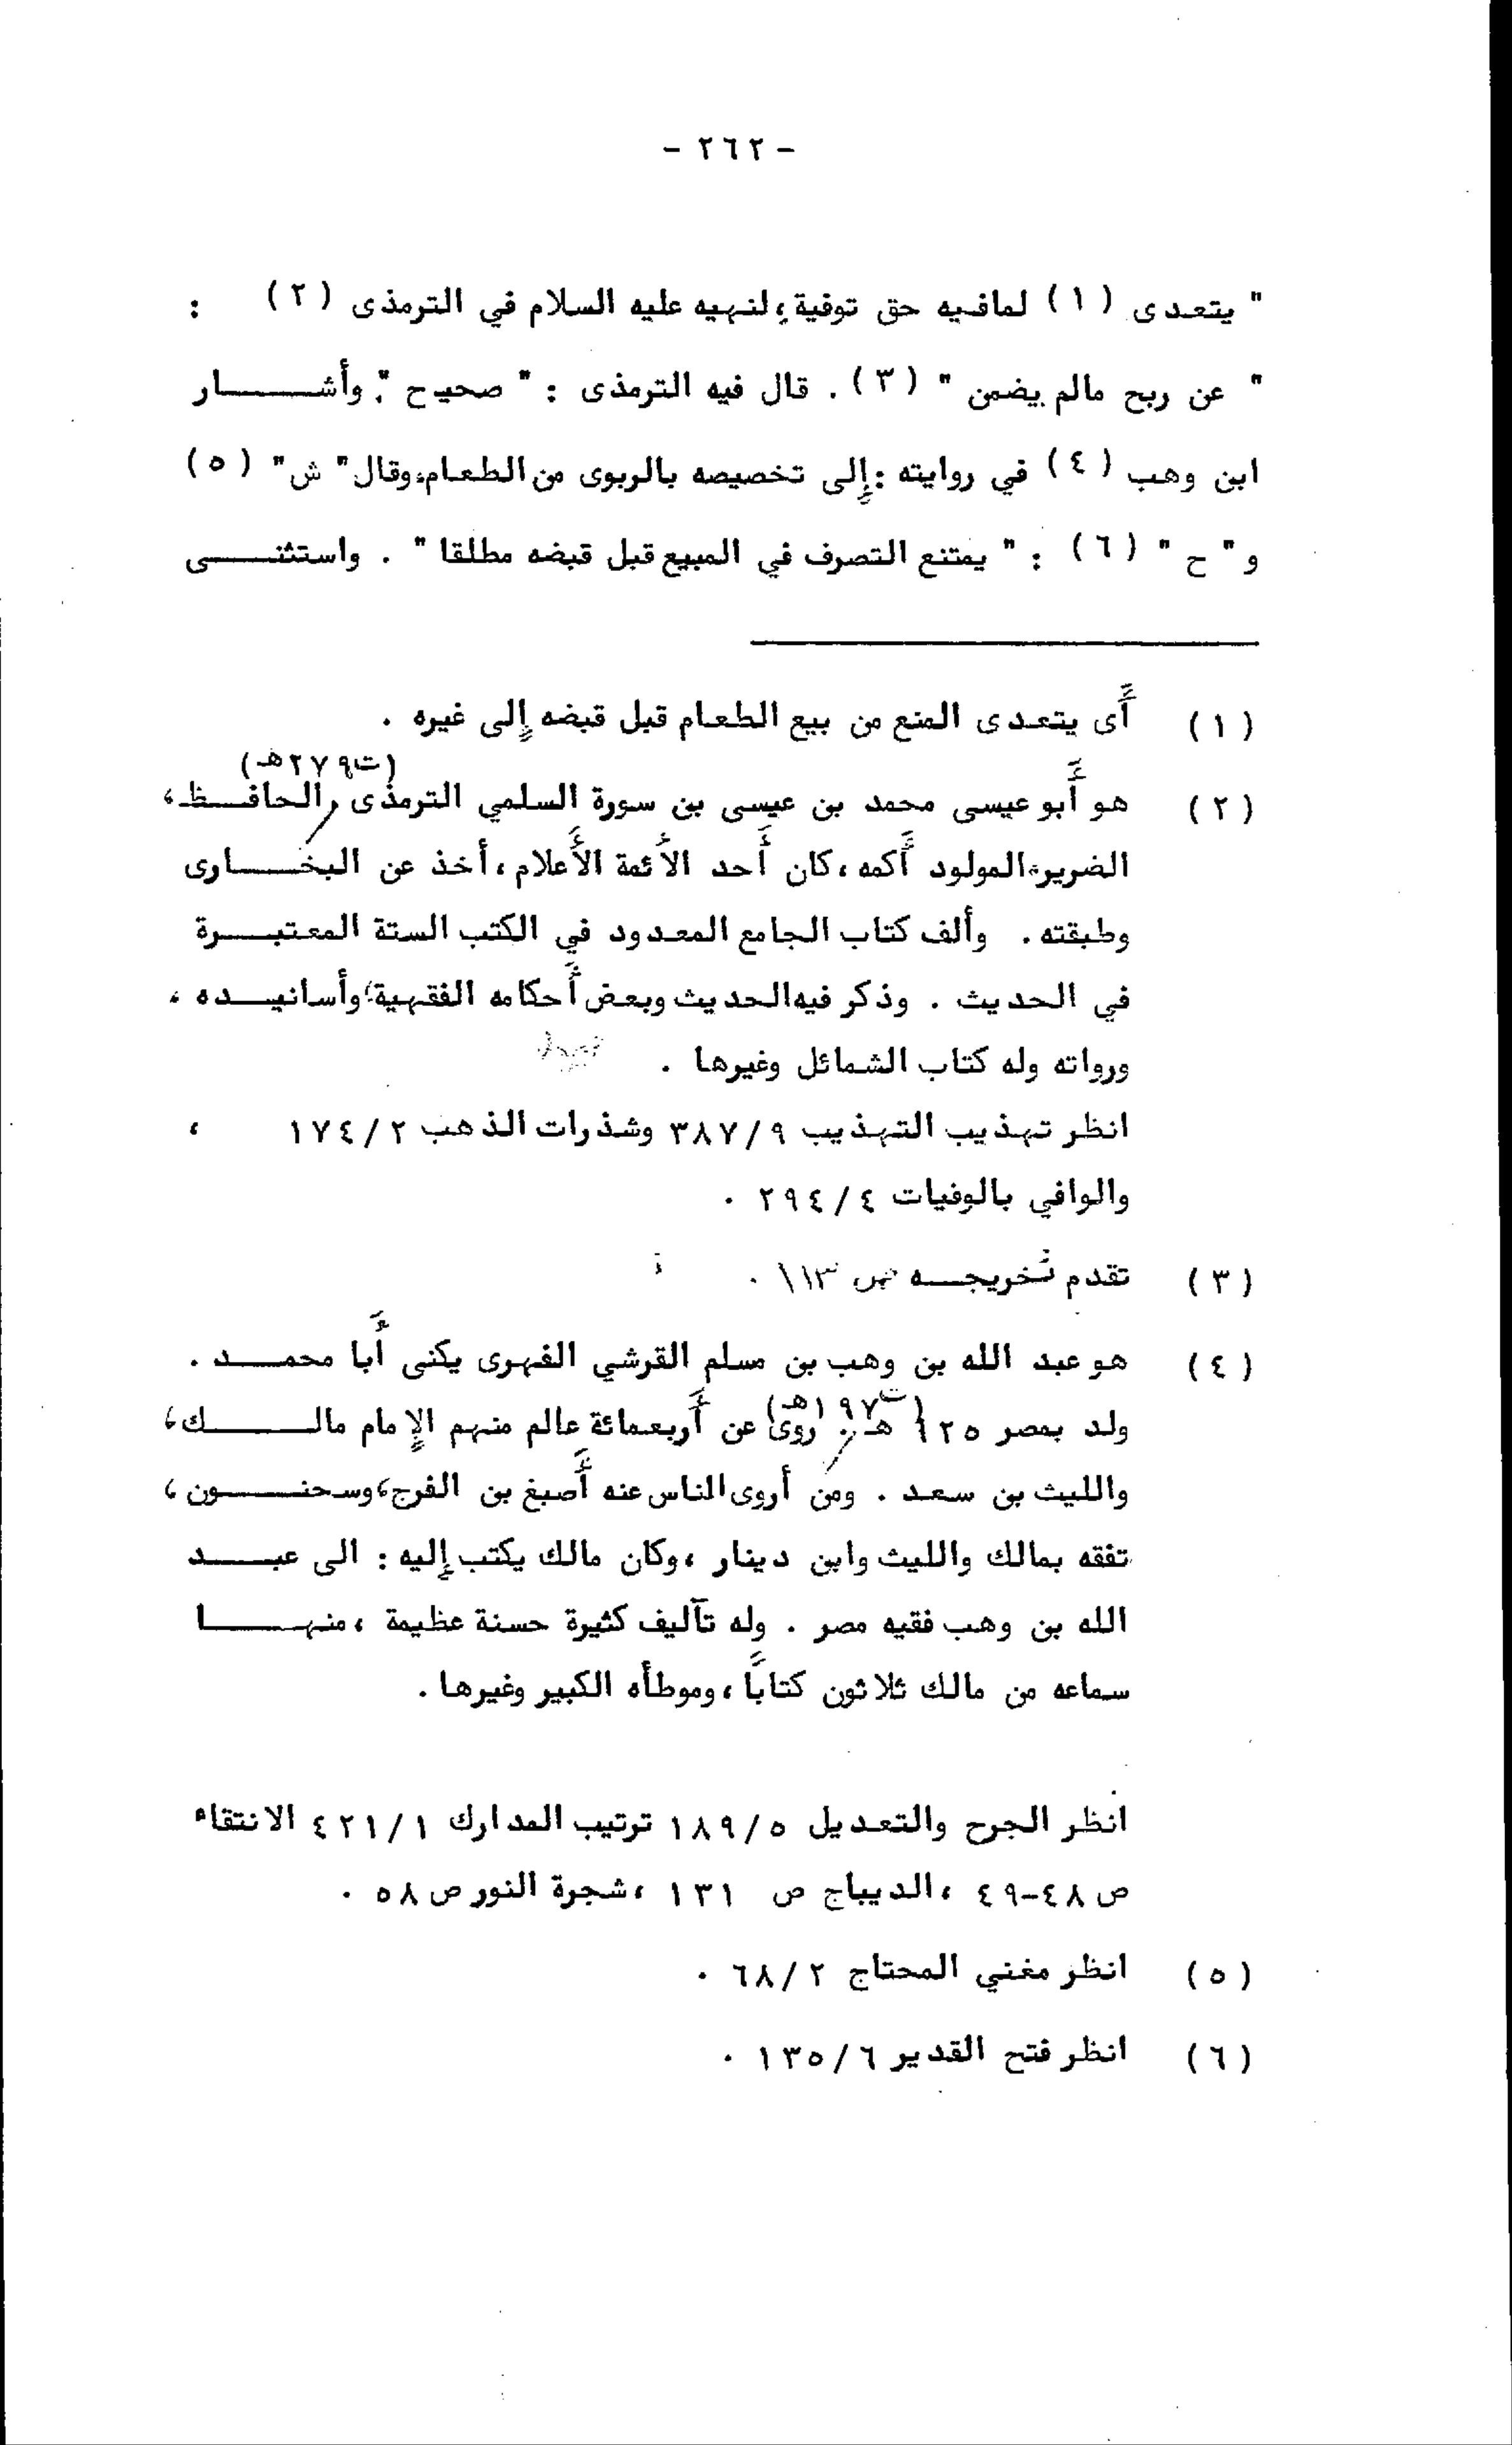 - ٢٦٢ -
" يتعدى (١) لمافيه حق توفية، لنهيه عليه السلام في الترمذى (٢) :
" عن ربح مالم يضمن " (٣) . قال فيه الترمذى : " صحيح ". وأشار
ابن وهب (٤) في روايته : إلى تخصيصه بالربوى من الطعام، وقال " ش " (٥)
و " ح " (٦) : " يمتنع التصرف في المبيع قبل قبضه مطلقا " . واستثنى
(١) أى يتعدى المنع من بيع الطعام قبل قبضه إلى غيره .
(٢) هو أبو عيسى محمد بن عيسى بن سورة السلمي الترمذى (ت ٢٧٩هـ) الحافظ،
الضرير، المولود أكمه ، كان أحد الأئمة الأعلام ، أخذ عن البخارى
وطبقته . وألف كتاب الجامع المعدود في الكتب الستة المعتبرة
في الحديث . وذكر فيه الحديث وبعض أحكامه الفقهية، وأسانيده ،
ورواته وله كتاب الشمائل وغيرها .
انظر تهذيب التهذيب ٣٨٧/٩ وشذرات الذهب ١٧٤/٢ ،
والوافي بالوفيات ٢٩٤/٤ .
(٣) تقدم تخريجه ص ١١٣ .
(٤) هو عبد الله بن وهب بن مسلم القرشي الفهرى يكنى أبا محمد .
ولد بمصر ١٢٥ هـ (ت ١٩٧هـ) روى عن أربعمائة عالم منهم الإمام مالك،
والليث بن سعد . ومن أروى الناس عنه أصبغ بن الفرج، وسحنون ،
تفقه بمالك والليث وابن دينار ، وكان مالك يكتب إليه : الى عبد
الله بن وهب فقيه مصر . وله تآليف كثيرة حسنة عظيمة ، منها
سماعه من مالك ثلاثون كتابا ، وموطأه الكبير وغيرها .
انظر الجرح والتعديل ١٨٩/٥ ترتيب المدارك ٤٢١/١ الانتقاء
ص ٤٨-٤٩ ، الديباج ص ١٣١ ، شجرة النور ص ٥٨ .
(٥) انظر مغني المحتاج ٦٨/٢ .
(٦) انظر فتح القدير ١٣٥/٦ .